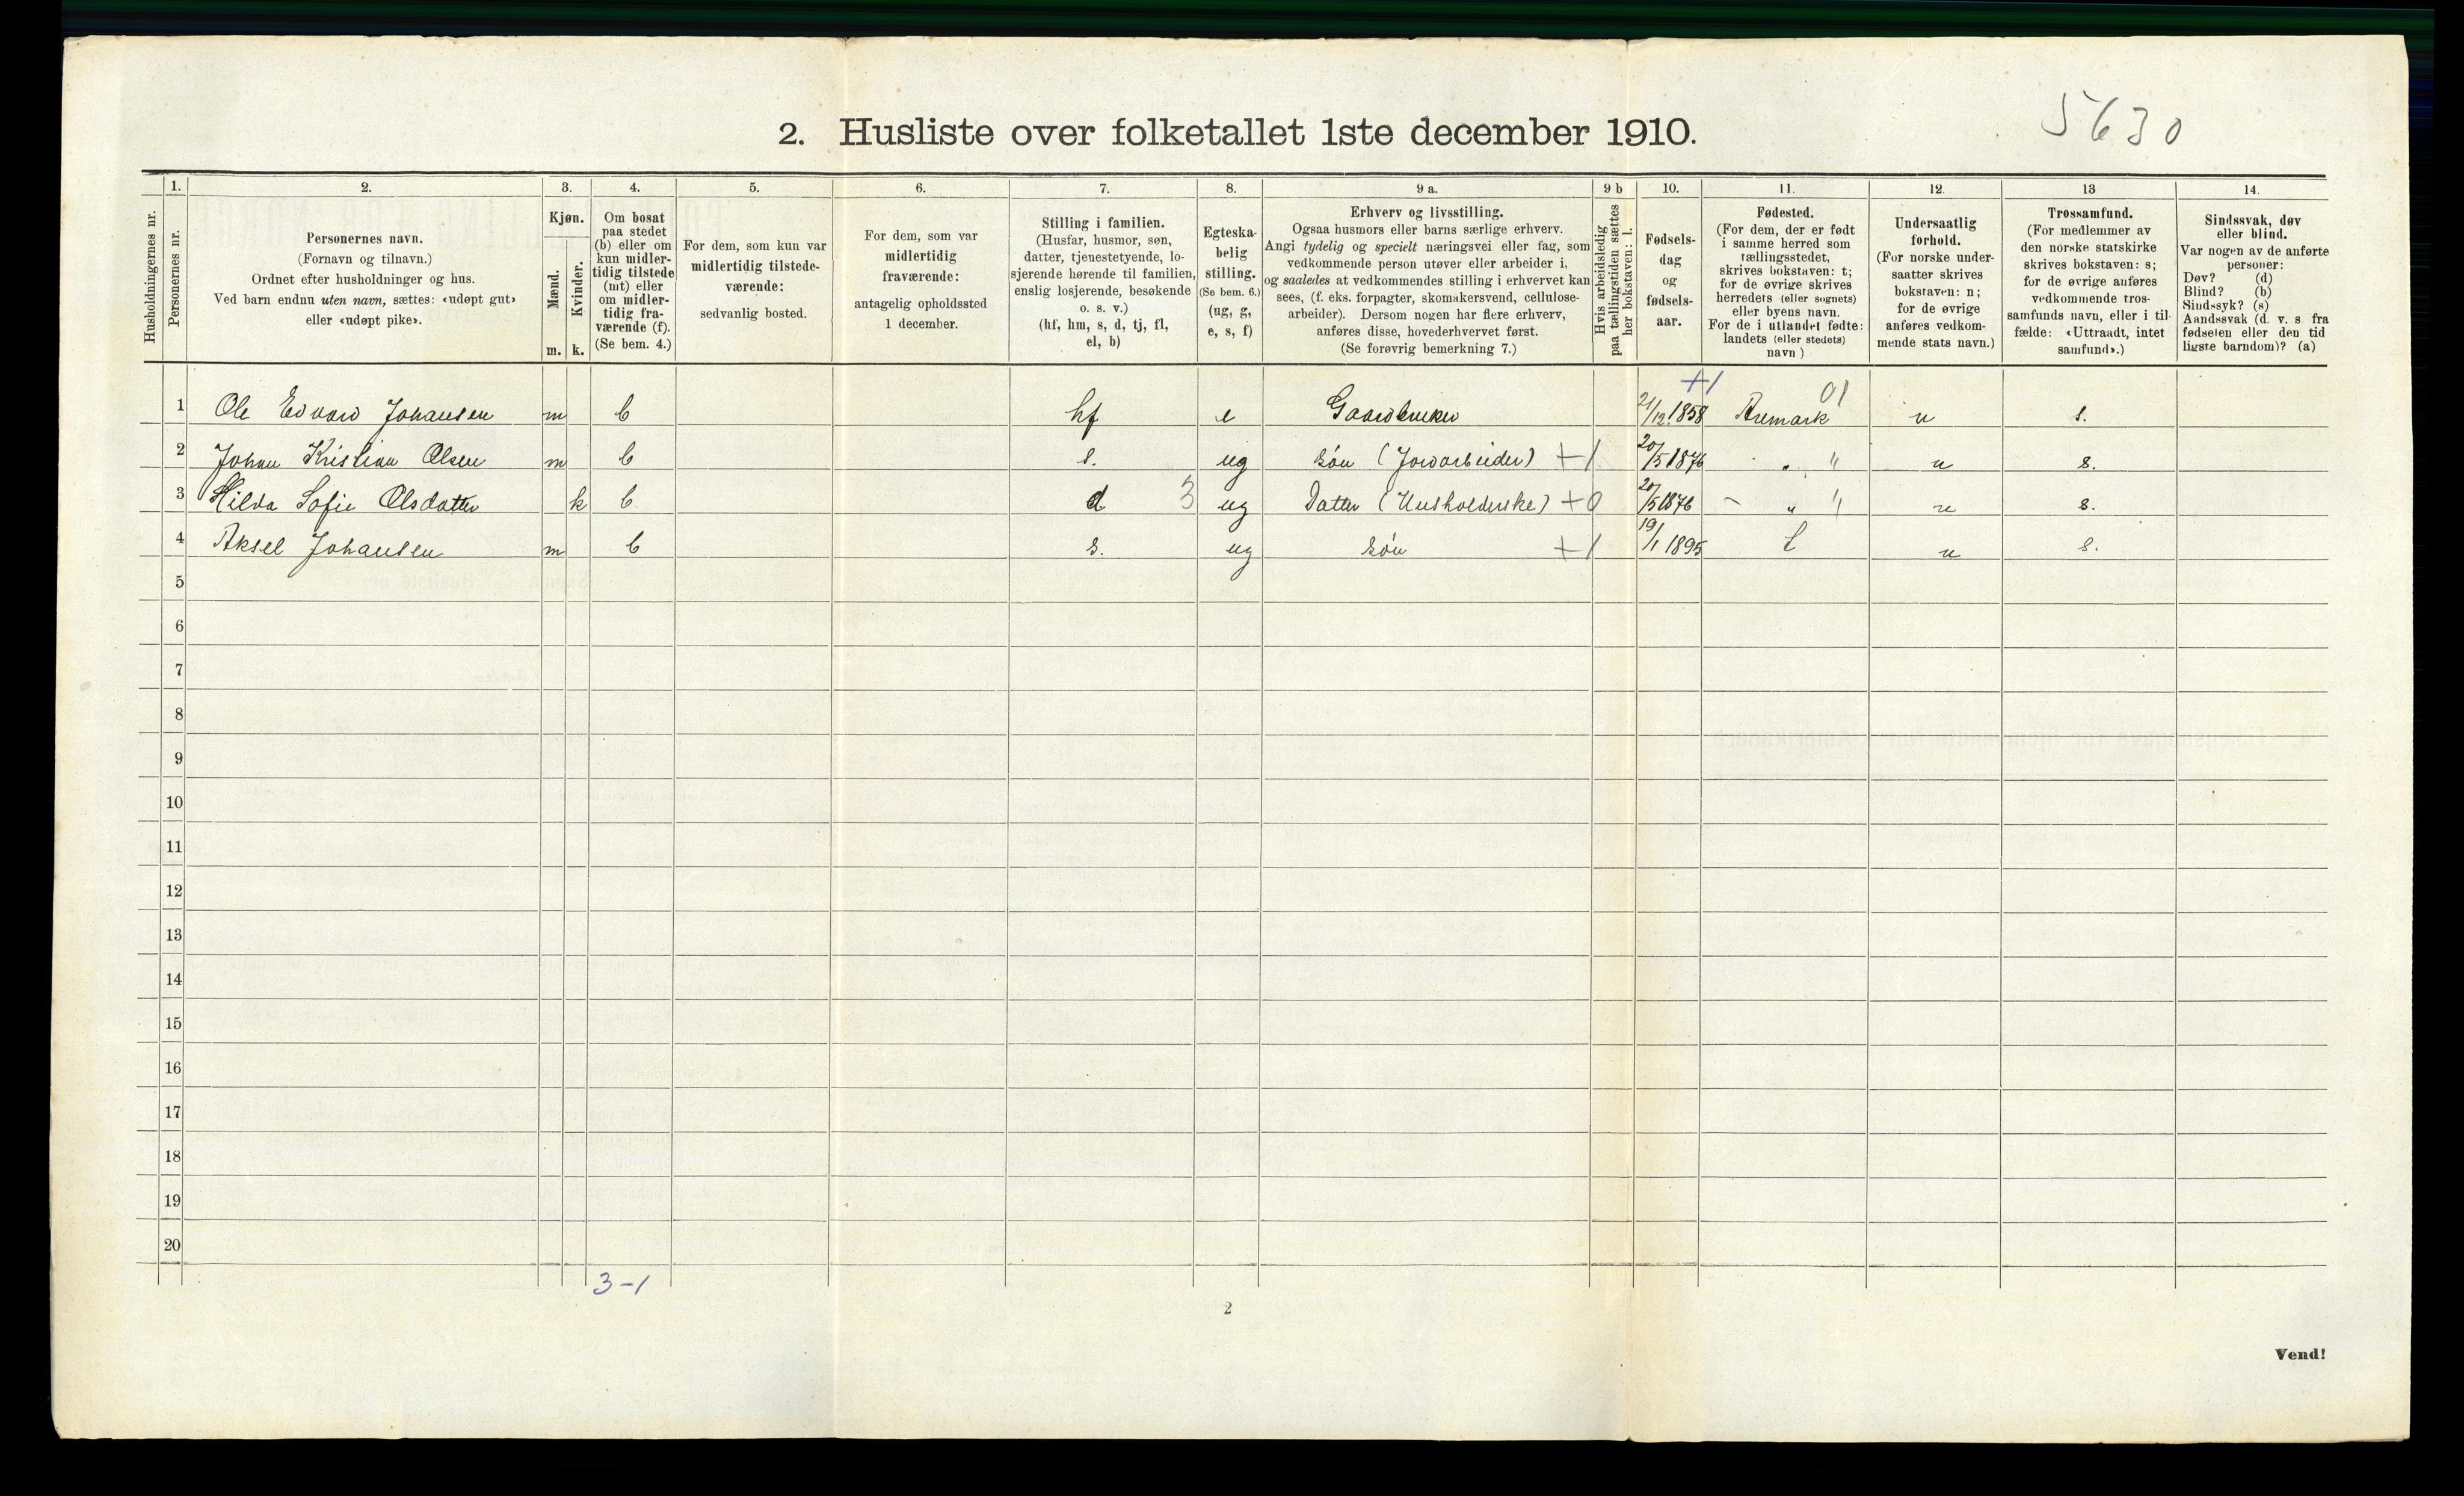 5630
2. Husliste over folketallet 1ste december 1910.
Husholdningernes nr.
1.
Personernes nr.
2.
Personernes navn.
(Fornavn og tilnavn.)
Ordnet efter husholdninger og hus.
Ved barn endnu uten navn, sættes: «udøpt gut»
eller «udøpt pike».
3.
Kjøn.
Mænd.
Kvinder.
m. k.
4.
Om bosat
paa stedet
(b) eller om
kun midler-
tidig tilstede
(mt) eller
om midler-
tidig fra-
værende (f).
(Se bem. 4.)
5.
For dem, som kun var
midlertidig tilstede-
værende:
sedvanlig bosted.
6.
For dem, som var
midlertidig
fraværende:
antagelig opholdssted
1 december.
7.
Stilling i familien.
(Husfar, husmor, søn,
datter, tjenestetyende, lo-
sjerende hørende til familien,
enslig losjerende, besøkende
o. s. v.)
(hf, hm, s, d, tj, fl,
el, b)
8.
Egteska-
belig
stilling.
(Se bem. 6.)
(ug, g,
e, s, f)
9 a.
Erhverv og livsstilling.
Ogsaa husmors eller barns særlige erhverv.
Angi tydelig og specielt næringsvei eller fag, som
vedkommende person utøver eller arbeider i,
og saaledes at vedkommendes stilling i erhvervet kan
sees, (f. eks. forpagter, skomakersvend, cellulose-
arbeider). Dersom nogen har flere erhverv,
anføres disse, hovederhvervet først.
(Se forøvrig bemerkning 7.)
9 b
Hvis arbeidsledig
paa tællingstiden sættes
her bokstaven: l.
10.
Fødsels-
dag
og
fødsels-
aar.
11.
Fødested.
(For dem, der er født
i samme herred som
tællingsstedet,
skrives bokstaven: t;
for de øvrige skrives
herredets (eller sognets)
eller byens navn.
For de i utlandet fødte:
landets (eller stedets)
navn)
12.
Undersaatlig
forhold.
(For norske under-
saatter skrives
bokstaven: n;
for de øvrige
anføres vedkom-
mende stats navn.)
13
Trossamfund.
(For medlemmer av
den norske statskirke
skrives bokstaven: s;
for de øvrige anføres
vedkommende tros-
samfunds navn, eller i til-
fælde: «Uttraadt, intet
samfund».)
14.
Sindssvak, døv
eller blind.
Var nogen av de anførte
personer:
Døv? (d)
Blind? (b)
Sindssyk? (s)
Aandssvak (d. v. s. fra
fødselen eller den tid
ligste barndom)? (a)
+1 01
1 Ole Edvard Johansen m b hf e Gaardbruker 21/12 1858 Aremark n s.
2 Johan Kristian Olsen m b s. ug søn (Jordarbeider) +1 20/5 1876 " " n s.
3 Hilda Sofie Olsdatter k b d 3 ug Datter (Husholderske) +0 20/5 1876 - " " n s.
4 Aksel Johansen m b s. ug søn +1 19/1 1895 t n s.
5
6
7
8
9
10
11
12
13
14
15
16
17
18
19
20
3-1
2
Vend!